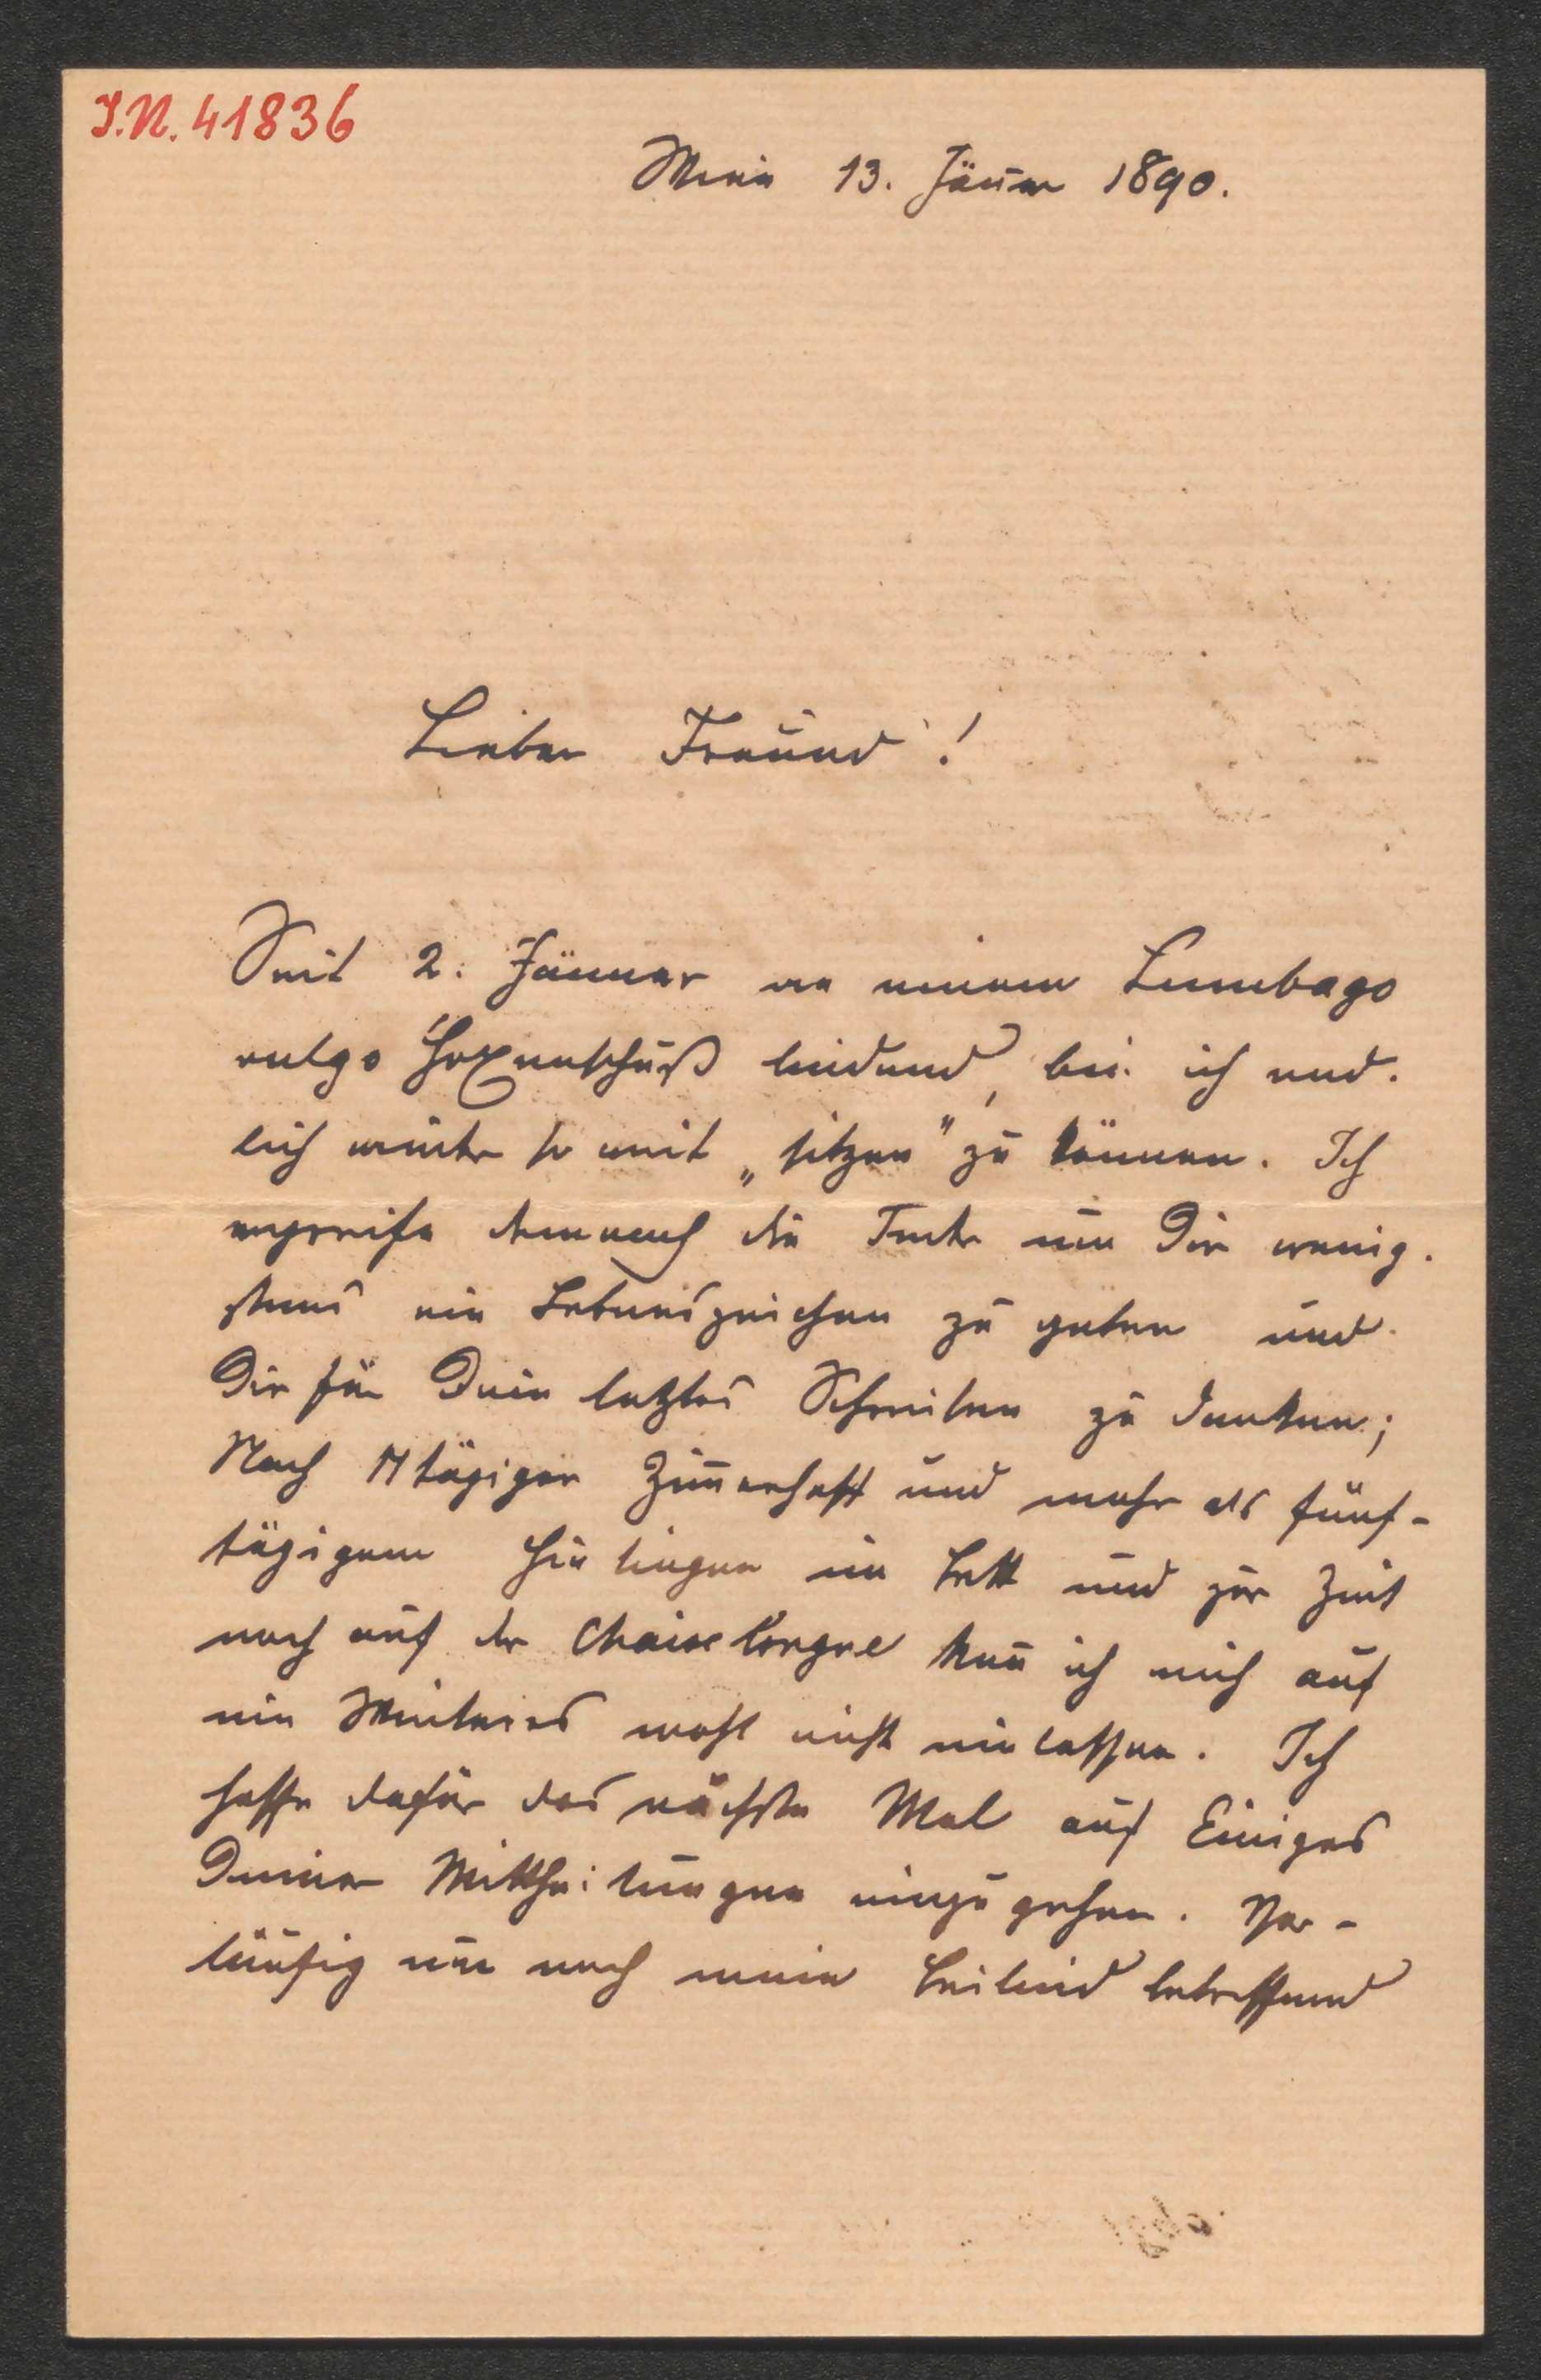 J.N. 41836
Wien 13. Jänner 1890.
Lieber Freund!
Seit 2. Jänner an einem Lumbago
vulgo Hexenschuß leidend, bin ich end-
lich wieder so weit „sitzen" zu können. Ich
ergreife demnach die Feder um Dir wenig-
stens ein Lebenszeichen zu geben und
Dir für Dein letztes Schreiben zu danken;
Nach 11 tägiger Zimmerhaft und mehr als fünf-
tägigem Hinliegen im Bett und zur Zeit
noch auf der Chaise longue kann ich mich auf
ein Weiteres wohl nicht einlassen. Ich
hoffe dafür das nächste Mal auf Einiges
Deiner Mittheilungen einzugehen. Vor-
läufig nur noch mein Beileid betreffend